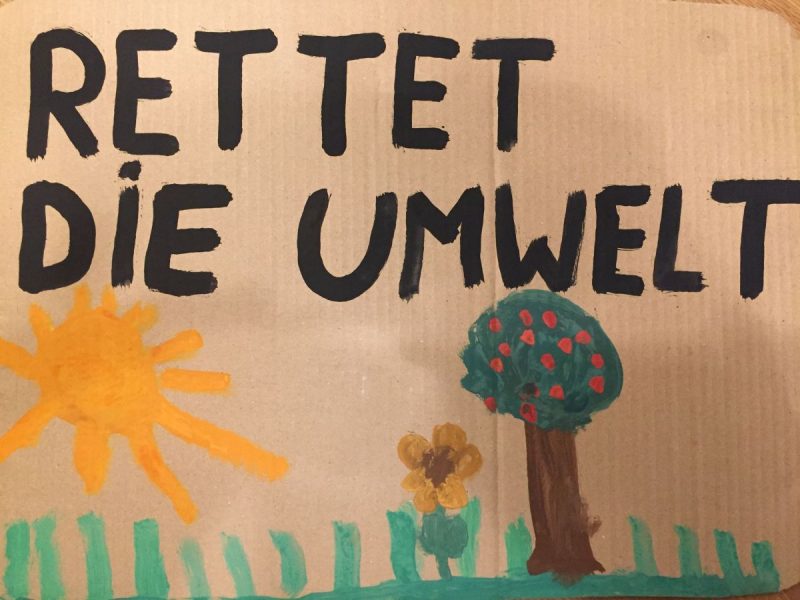 RETTET
DiE UMWELT